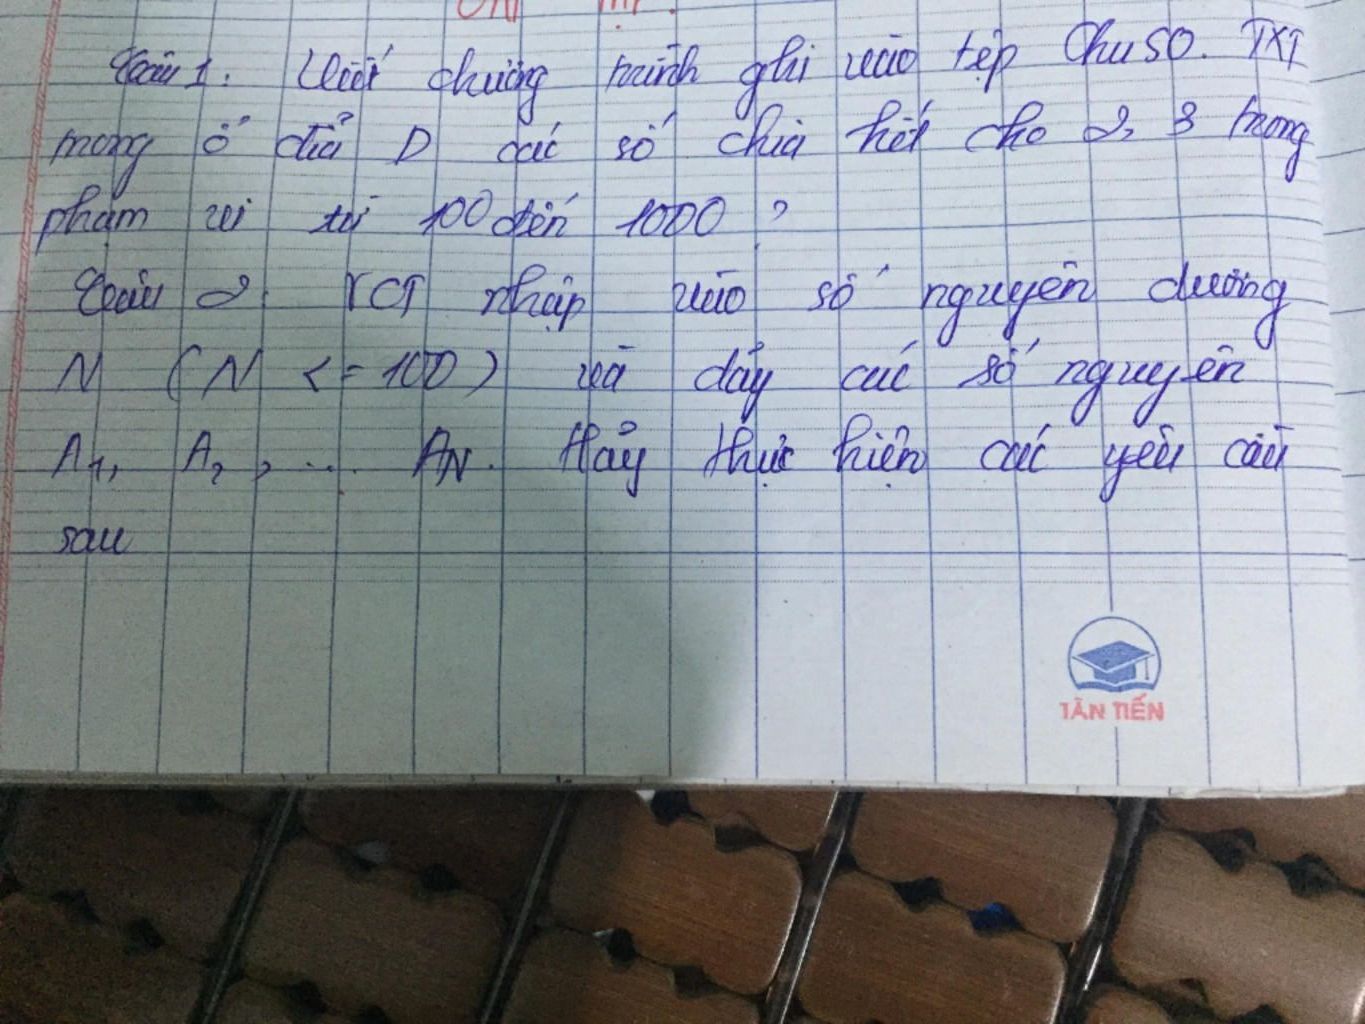 Câu 1: Viết chương trình ghi vào tệp Chuso.TXT
trong ổ đĩa D các số chia hết cho 2, 3 trong
phạm vi từ 100 đến 1000 ?
Câu 2: VCT nhập vào số nguyên dương
N (N <= 100) và dảy các số nguyên
A1, A2, ... AN. Hảy thực hiện các yêu cầu
sau
TÂN TIẾN